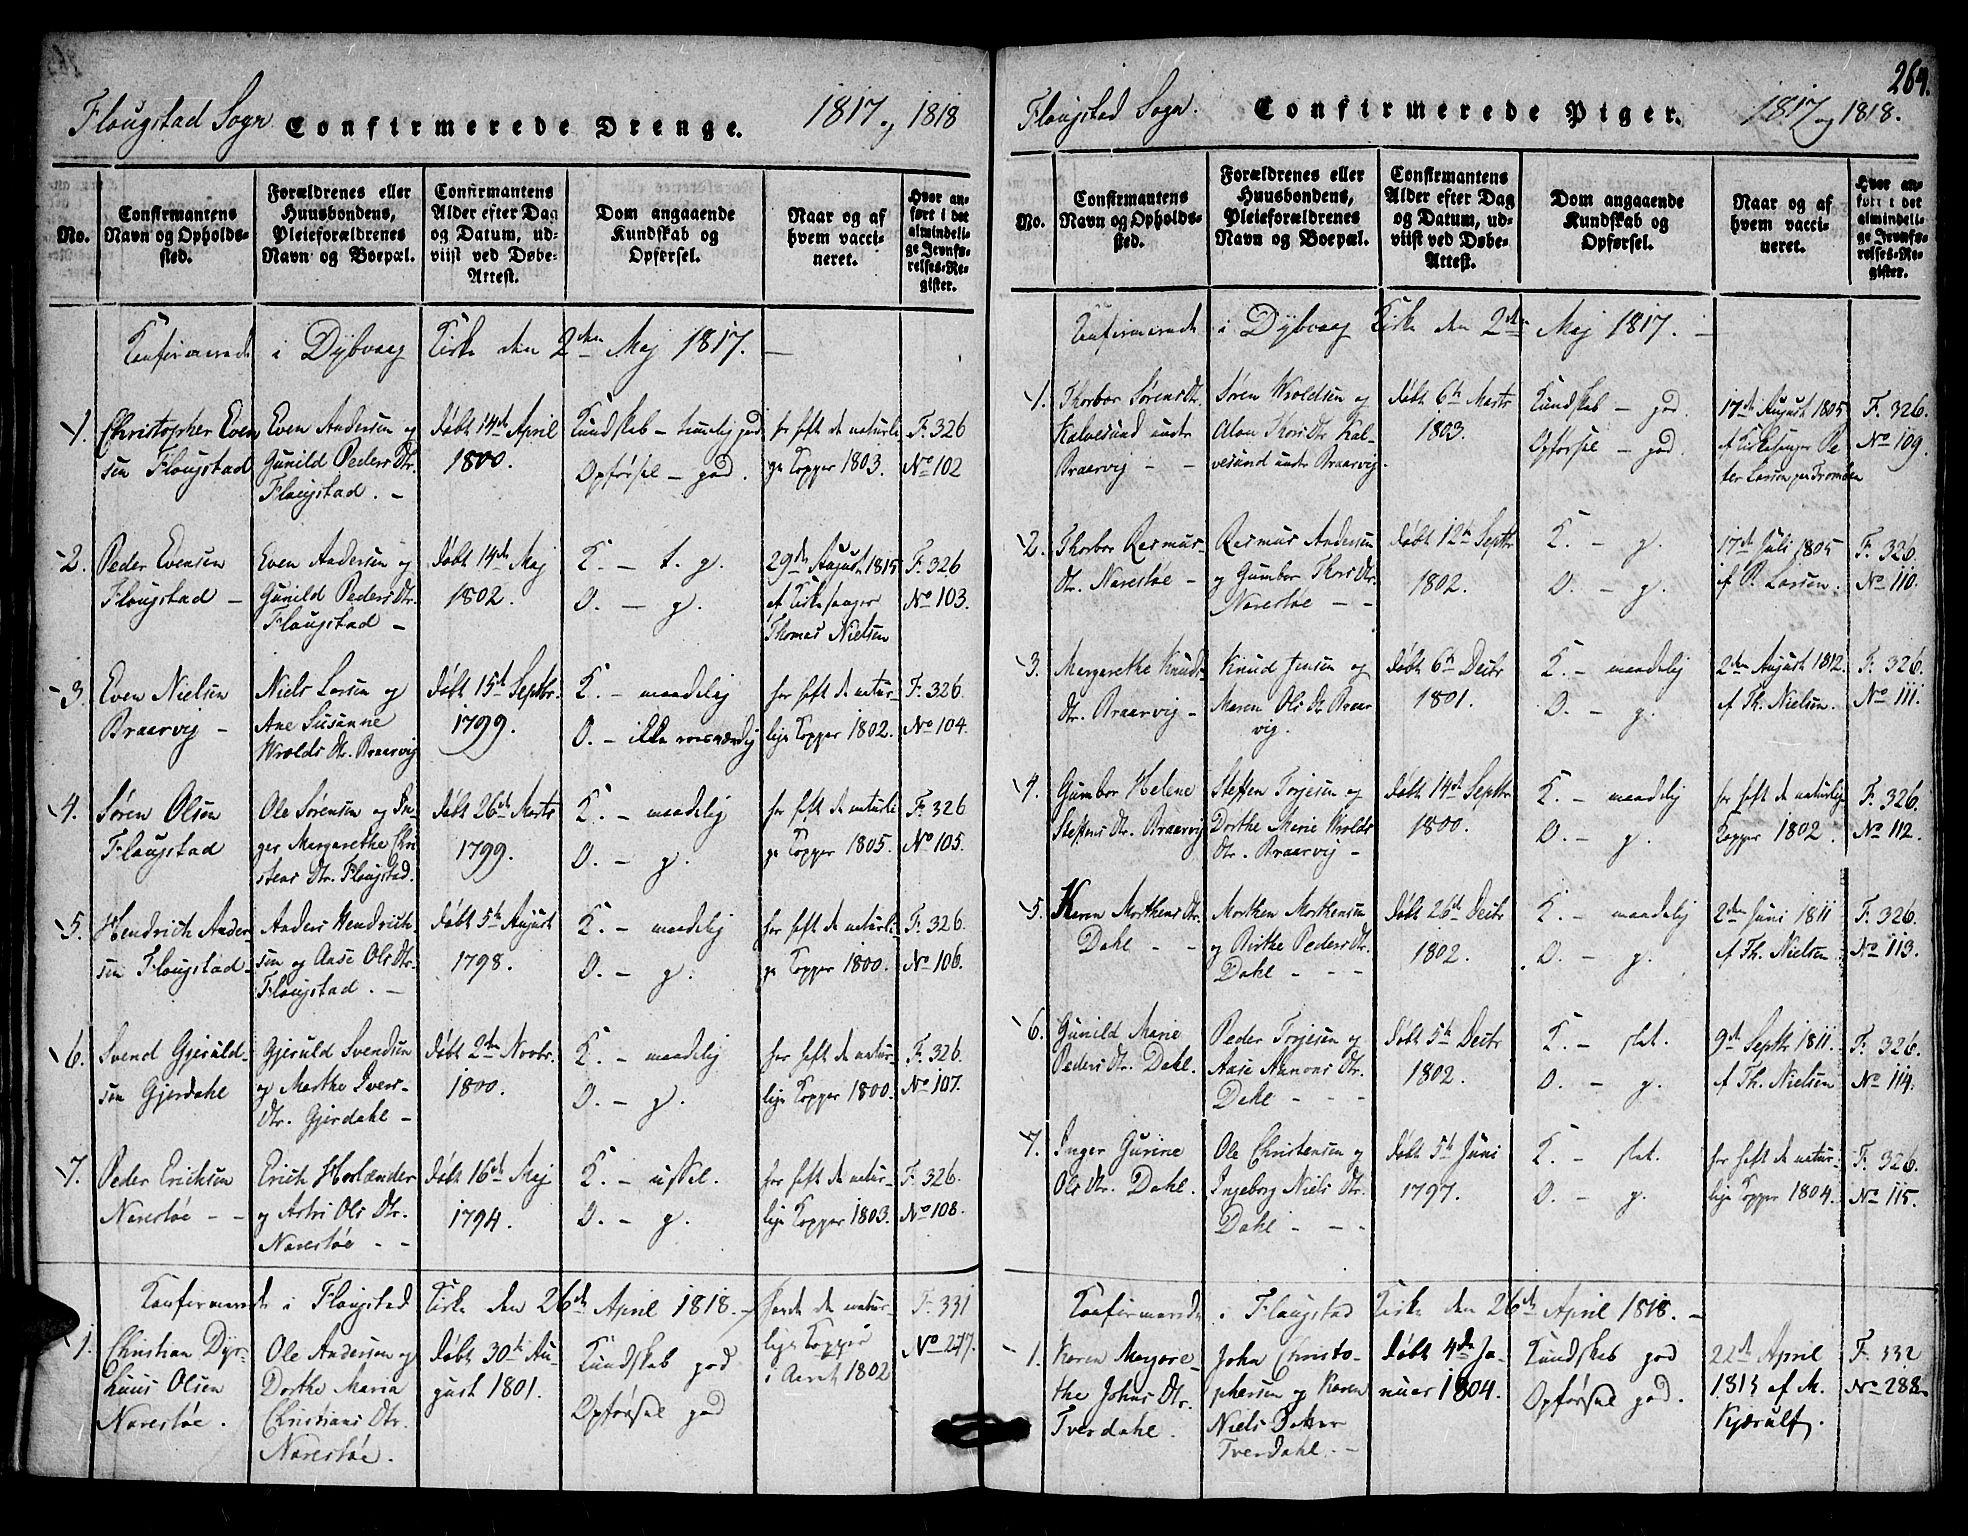 Flougstad Sogn Confirmerede Drenge. 1817 og 1818
No.
Confirmantens
Navn og Opholds-
sted.
Forældrenes eller
Huusbondens,
Pleieforældrenes
Navn og Boepæl.
Confirmantens
Alder efter Dag
og Datum, ud-
viist ved Døbe-
Attest.
Dom angaaende
Kundskab og
Opførsel.
Naar og af
hvem vacci-
neret.
Hvor an-
ført i det
almindeli-
ge Jevnfø-
relses-Re-
gister.
Confirmerede i Dybvaag Kirke den 2den Maj 1817. —
1.
Christopher Even
sen Flougstad
Even Andersen og
Gunild Peders Dtr.
Flougstad. —
døbt 14de April
1800.
Kundskab — temelig god
Opførsel — god.
har haft de naturli
ge Kopper 1803.
F. 326
No 102
2.
Peder Evensen
Flougstad —
Even Andersen og
Gunild Peders Dtr.
Flougstad —
døbt 14de Maj
1802.
K. — t. g.
O. — g.
29de August 1815
af Kirkesanger
Thomas Nielsen
F. 326
No 103.
3.
Even Nielsen
Braarvig —
Niels Larsen og
Ane Susanne
Wrolds Dtr. Braarvig
døbt 15de Septbr.
1799.
K. — maadelig
O. — ikke
har haft de natur-
lige Kopper 1802.
F. 326.
No 104.
4.
Søren Olsen
Flougstad
Ole Sørensen og In-
ger Margarethe Chri
stens Dtr. Flougstad.
døbt 26de Marts
1799.
K. — maadelig
O. — g.
har haft de naturli
ge Kopper 1805.
F. 326
No 105.
5.
Hendrich Ander-
sen Flougstad —
Anders Hendrich-
sen og Aase Ols Dtr.
Flougstad. —
døbt 5te August
1798.
K. — maadelig
O. — g.
har haft de naturli-
ge Kopper 1800.
F. 326.
No 106.
6.
Svend Gjeruld-
sen Gjerdahl
Gjeruld Svendsen
og Marthe Ivers-
Dtr. Gjerdahl —
døbt 2den Novbr.
1800.
K. — maadelig
O. — g.
har haft de natur-
lige Kopper 1800.
F. 326.
No 107.
7.
Peder Erichsen
Narestøe — —
Erich Horlænder
og Astri Ols Dtr.
Narestøe — —
døbt 16de Maj
1794.
K. — ussel.
O. — g.
har haft de natur-
lige Kopper 1803.
F. 326.
No 108.
Confirmerede i Flougstad Kirke den 26de April 1818. —
1.
Christian Dyr-
huus Olsen
Narestøe.
Ole Andersen og
Dorthe Maria
Christians Dtr.
Narestøe.
døbt 30te Au-
gust 1801.
Kundskab god
Opførsel god
havde de natur-
lige Kopper
i Aaret 1802
F. 331
No 277.
264.
Flougstad Sogn. Confirmerede Piger. 1817 og 1818.
No.
Confirmantens
Navn og Opholds-
sted.
Forældrenes eller
Huusbondens,
Pleieforældrenes
Navn og Boepæl.
Confirmantens
Alder efter Dag
og Datum, ud-
viist ved Døbe-
Attest.
Dom angaaende
Kundskab og
Opførsel.
Naar og af
hvem vacci-
neret.
Hvor an-
ført i det
almindeli-
ge Jevnfø-
relses-Re-
gister.
Confirmerede i Dybvaag Kirke den 2den Maj 1817. —
1.
Thorbor Sørens Dtr.
Kalvesund under
Braarvig — —
Søren Wroldsen og
Alow Thors Dtr. Kal-
vesund under Braarvig.
døbt 6te Marts
1803.
Kundskab — god.
Opførsel — god.
17de August 1805
af Kirkesanger Pe
ter Larsen paa Tromøen
F. 326.
No 109.
2.
Thorbor Rasmus-
Dtr. Narestøe —
Rasmus Andersen
og Gumbor Thors Dtr.
Narestøe — —
døbt 12te Septbr
1802.
K. — g.
O. — g.
17de Juli 1805
af P. Larsen.
F. 326.
No 110.
3.
Margarethe Knuds-
Dtr. Braarvig —
Knud Jensen og
Maren Ols Dtr Braar
vig.
døbt 6te Decbr
1801.
K. — maadelig
O. — g.
2den August 1812.
af Th. Nielsen.
F. 326.
No 111.
4.
Gumbor Helene
Steffens Dtr. Braarvig
Steffen Torjesen og
Dorthe Marie Wrolds
Dtr. Braarvig —
døbt 14de Septbr
1800.
K. — maadelig
O. — g.
har haft de naturlige
Kopper 1802.
F. 326.
No 112.
5.
Karen Morthens Dtr.
Dahl — —
Morthen Morthensen
og Birthe Peders Dtr.
Dahl — — —
døbt 26de Decbr
1802.
K. — maadelig
O. — g.
2den Juni 1811
af Th. Nielsen —
F. 326.
No 113.
6.
Gunild Marie
Peders Dtr. Dahl.
Peder Torjesen og
Aase Aanons Dtr.
Dahl — — —
døbt 5te Decbr
1802.
K. — slet.
O. — g.
9de Septbr 1811.
af Th. Nielsen
F. 326.
No 114.
7.
Inger Gurine
Ols Dtr. Dahl.
Ole Christensen og
Ingeborg Niels Dtr.
Dahl — — —
døbt 5te Juni
1797.
K. — slet.
O. — g.
har haft de natur-
lige Kopper 1804.
F. 326.
No 115.
Confirmerede i Flougstad Kirke den 26de April 1818. —
1.
Karen Margre-
the Johns Dtr.
Tverdahl.
John Christo-
phersen og Karen
Niels Datter
Tverdahl. —
døbt 4de Ja-
nuar 1804.
Kundskab god
Opførsel god.
22de April
1813 af M.
Kjærulf.
F. 332
No 288.